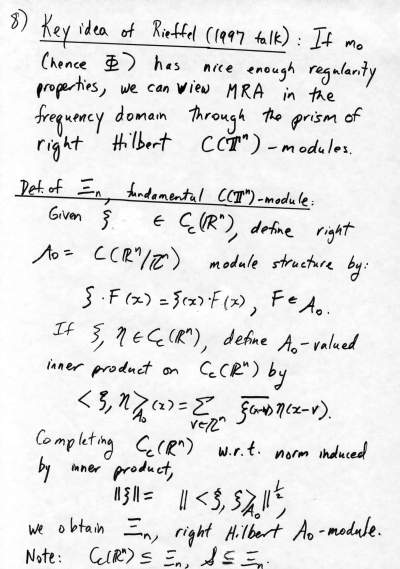 8) Key idea of Rieffel (1997 talk): If m₀
(hence Φ) has nice enough regularity
properties, we can view MRA in the
frequency domain through the prism of
right Hilbert C(𝕋ⁿ)-modules.
Def. of Ξₙ, fundamental C(𝕋ⁿ)-module:
Given ξ ∈ C_c(ℝⁿ), define right
A₀ = C(ℝⁿ/ℤⁿ) module structure by:
ξ·F(x) = ξ(x)·F(x), F ∈ A₀.
If ξ, η ∈ C_c(ℝⁿ), define A₀-valued
inner product on C_c(ℝⁿ) by
<ξ, η>_{A₀}(x) = Σ_{v∈ℤⁿ} \overline{ξ(x-v)} η(x-v).
Completing C_c(ℝⁿ) w.r.t. norm induced
by inner product,
||ξ|| = ||<ξ, ξ>_{A₀}||^{1/2},
we obtain Ξₙ, right Hilbert A₀-module.
Note: C_c(ℝⁿ) ⊆ Ξₙ, 𝒮 ⊆ Ξₙ.